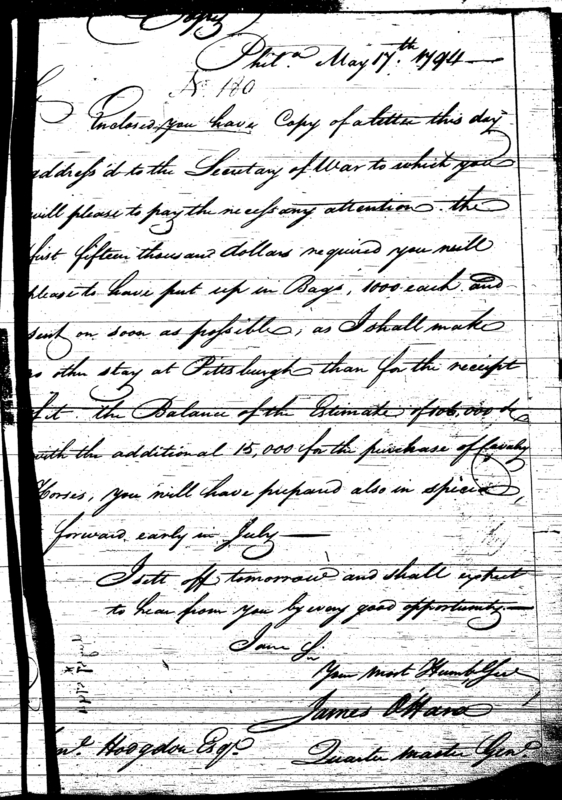 Copy
Phila May 17th. 1794
No. 180
Enclosed, you have Copy of a letter this day
address'd to the Secretary of War to which you
will please to pay the necessary attention. the
first fifteen thousand dollars required you will
please to have put up in Bags, 1000 each and
sent on soon as possible, as I shall make
no other stay at Pittsburgh than for the receipt
of it the Balance of the Estimate of 106,000 ds
with the additional 15,000 for the purchase of Cavalry
Horses, you will have prepared also in specie,
forward early in July
I sett off tomorrow and shall expect
to hear from you by every good opportunity.
I am Sir
Your most Humb. Ser
James O'Hara
Quarter Master Genl.
Hodgdon Esqr.